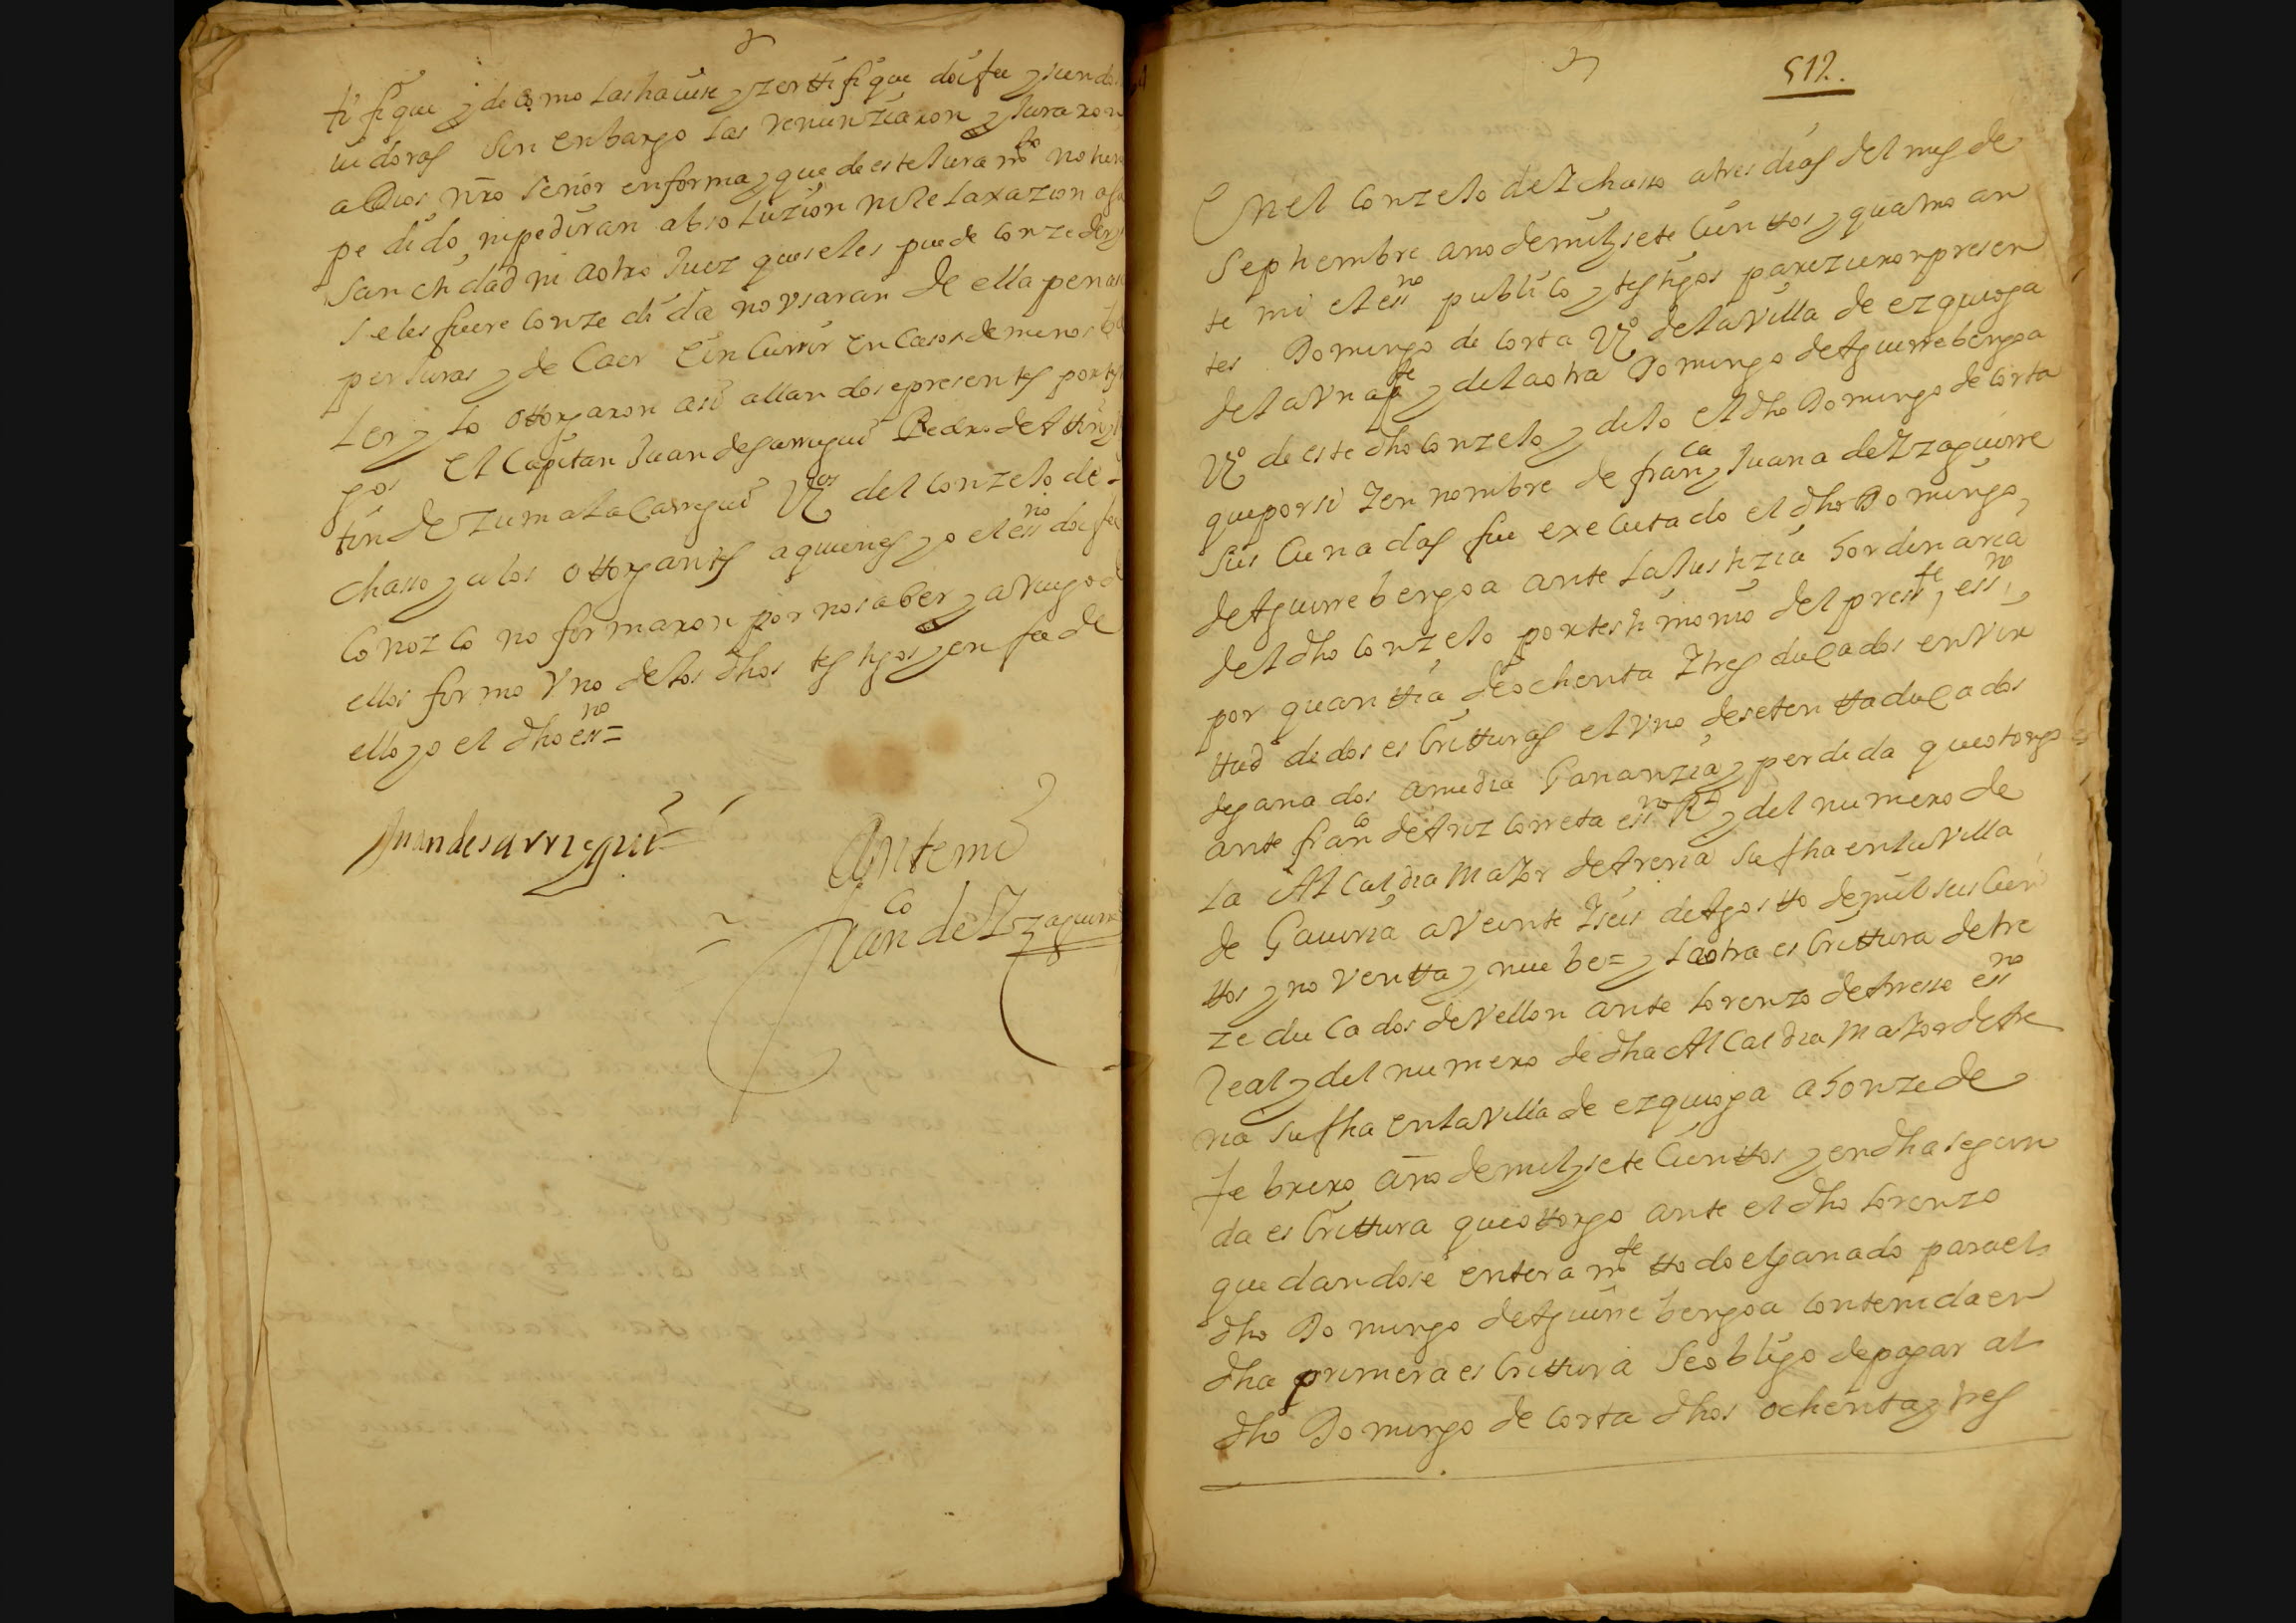 tifique y de como las hauise y zerttifique doi fee y siendo
uidoras sin enbargo las renunziaron y Juraron
a Dios nro señor en forma y que de este Juramto no han
pedido, ni pediran absoluzion ni Relaxazion a su
Sanctidad ni aotro Juez que se les puede conzeder y
se les fuere conzedida no vsaran de ella pena de
perJuras y de Caer E incurrir en Casos de menos
Ler y lo ottorgaron asi allandose presentes por testi
gos El Capitan Juan de Sarregui Pedro de
tin de Zumalacarregui Vos del conzeJo de
chasso y a los ottorgantes a quienes yo el essno doi fee
Conozco no firmaron por no saber y a Ruego de
ellos firmo Vno de los dhos testigos y en fee de
ello yo el dho essno=
Juan de sarregui
Ante mi
Franco de Yzaguirre
512.
En el Conzejo de Ychasso a tres dias del mes de
Septiembre año de mil y sete Cienttos y quatro an
te mi el essno publico y testigos parezieron presen
tes Domingo de Corta Vo de la Villa de ezquioga
de la Vna pte y de la otra Domingo de Aguirrebengoa
Vo de este dho Conzejo y dijo el dho Domingo de Corta
que por si Y en nombre de franca y Juana de Yzaguirre
sus Cuñadas fue executado el dho Domingo
de Aguirrebengoa ante la Justizia hordinaria
del dho Conzejo por testimonio del presste essno,
por quanttia de ochenta Y tres ducados en Vir
ttud de dos escritturas el Vno de setentta ducados
de ganados a media Gananzia y perdida que otorgo
ante franco de Arizcorreta essno Rl y del numero de
la Alcaldia Maior de Areria su fha en la Villa
de Gauiria a Veinte Y seis de Agostto de mil seis Cien
ttos y noVentta y nuebe= y la otra escrittura de tre
ze ducados de Vellon ante Lorenzo de Arresse essno
Real y del numero de dha Alcaldia Maior de Are
ria su fha en la Villa de ezquioga a honze de
febrero año de mil y sete Cienttos y en dha segun
da escrittura que ottorgo ante el dho Lorenzo
quedandose enteramte ttodo el ganado para el
dho Domingo de Aguirrebengoa contenida en
dha primera escrittura se obligo de pagar al
dho Domingo de Corta dhos ochenta y tres